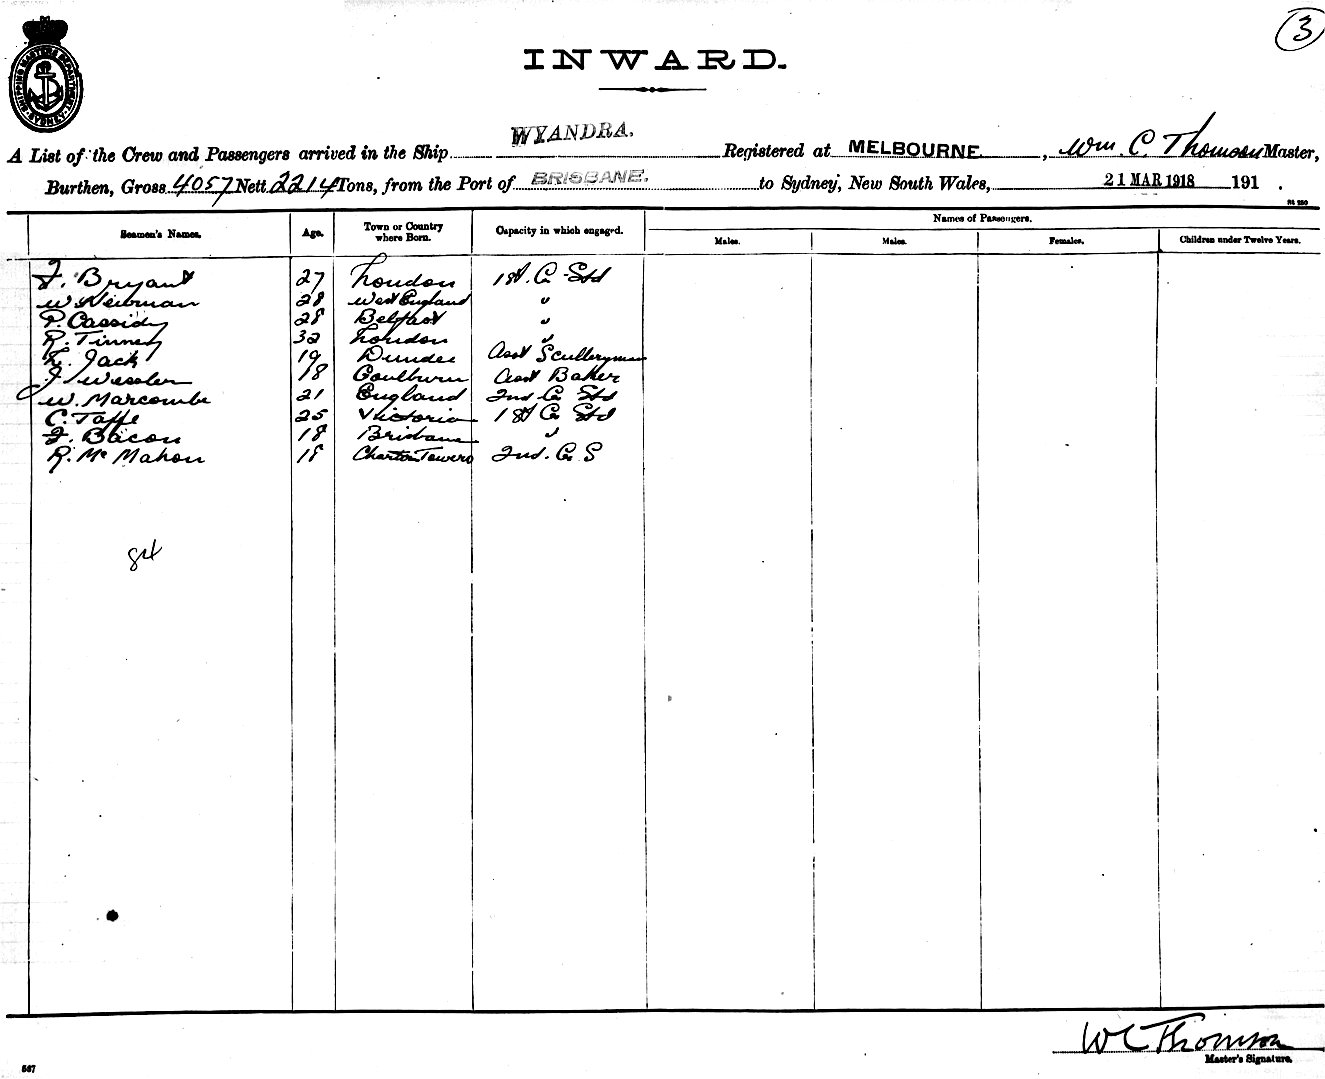 3
SHIPPING MASTERS DEPARTMENT SYDNEY
INWARD.
A List of the Crew and Passengers arrived in the Ship WYANDRA. Registered at MELBOURNE, Wm. C. Thomson Master,
Burthen, Gross 4057 Nett 2214 Tons, from the Port of BRISBANE. to Sydney, New South Wales, 21 MAR 1918 191 .
Seamen's Names. Age. Town or Country where Born. Capacity in which engaged. Names of Passengers.
Males. Males. Females. Children under Twelve Years.
F. Bryant 27 London 1st. C. Std
W. Newman 28 West England "
P. Cassidy 28 Belfast "
R. Tinney 32 London "
Jack 19 Dundee Asst Sculleryman
J Wessler 18 Goulburn Asst Baker
W. Marcombe 21 England 2nd C. Std
C. Taffe 25 Victoria 1st C. Std
F. Bacon 18 Brisbane "
R. Mc Mahon 18 Charters Towers 2nd. C. S
84
W C Thomson
Master's Signature.
567